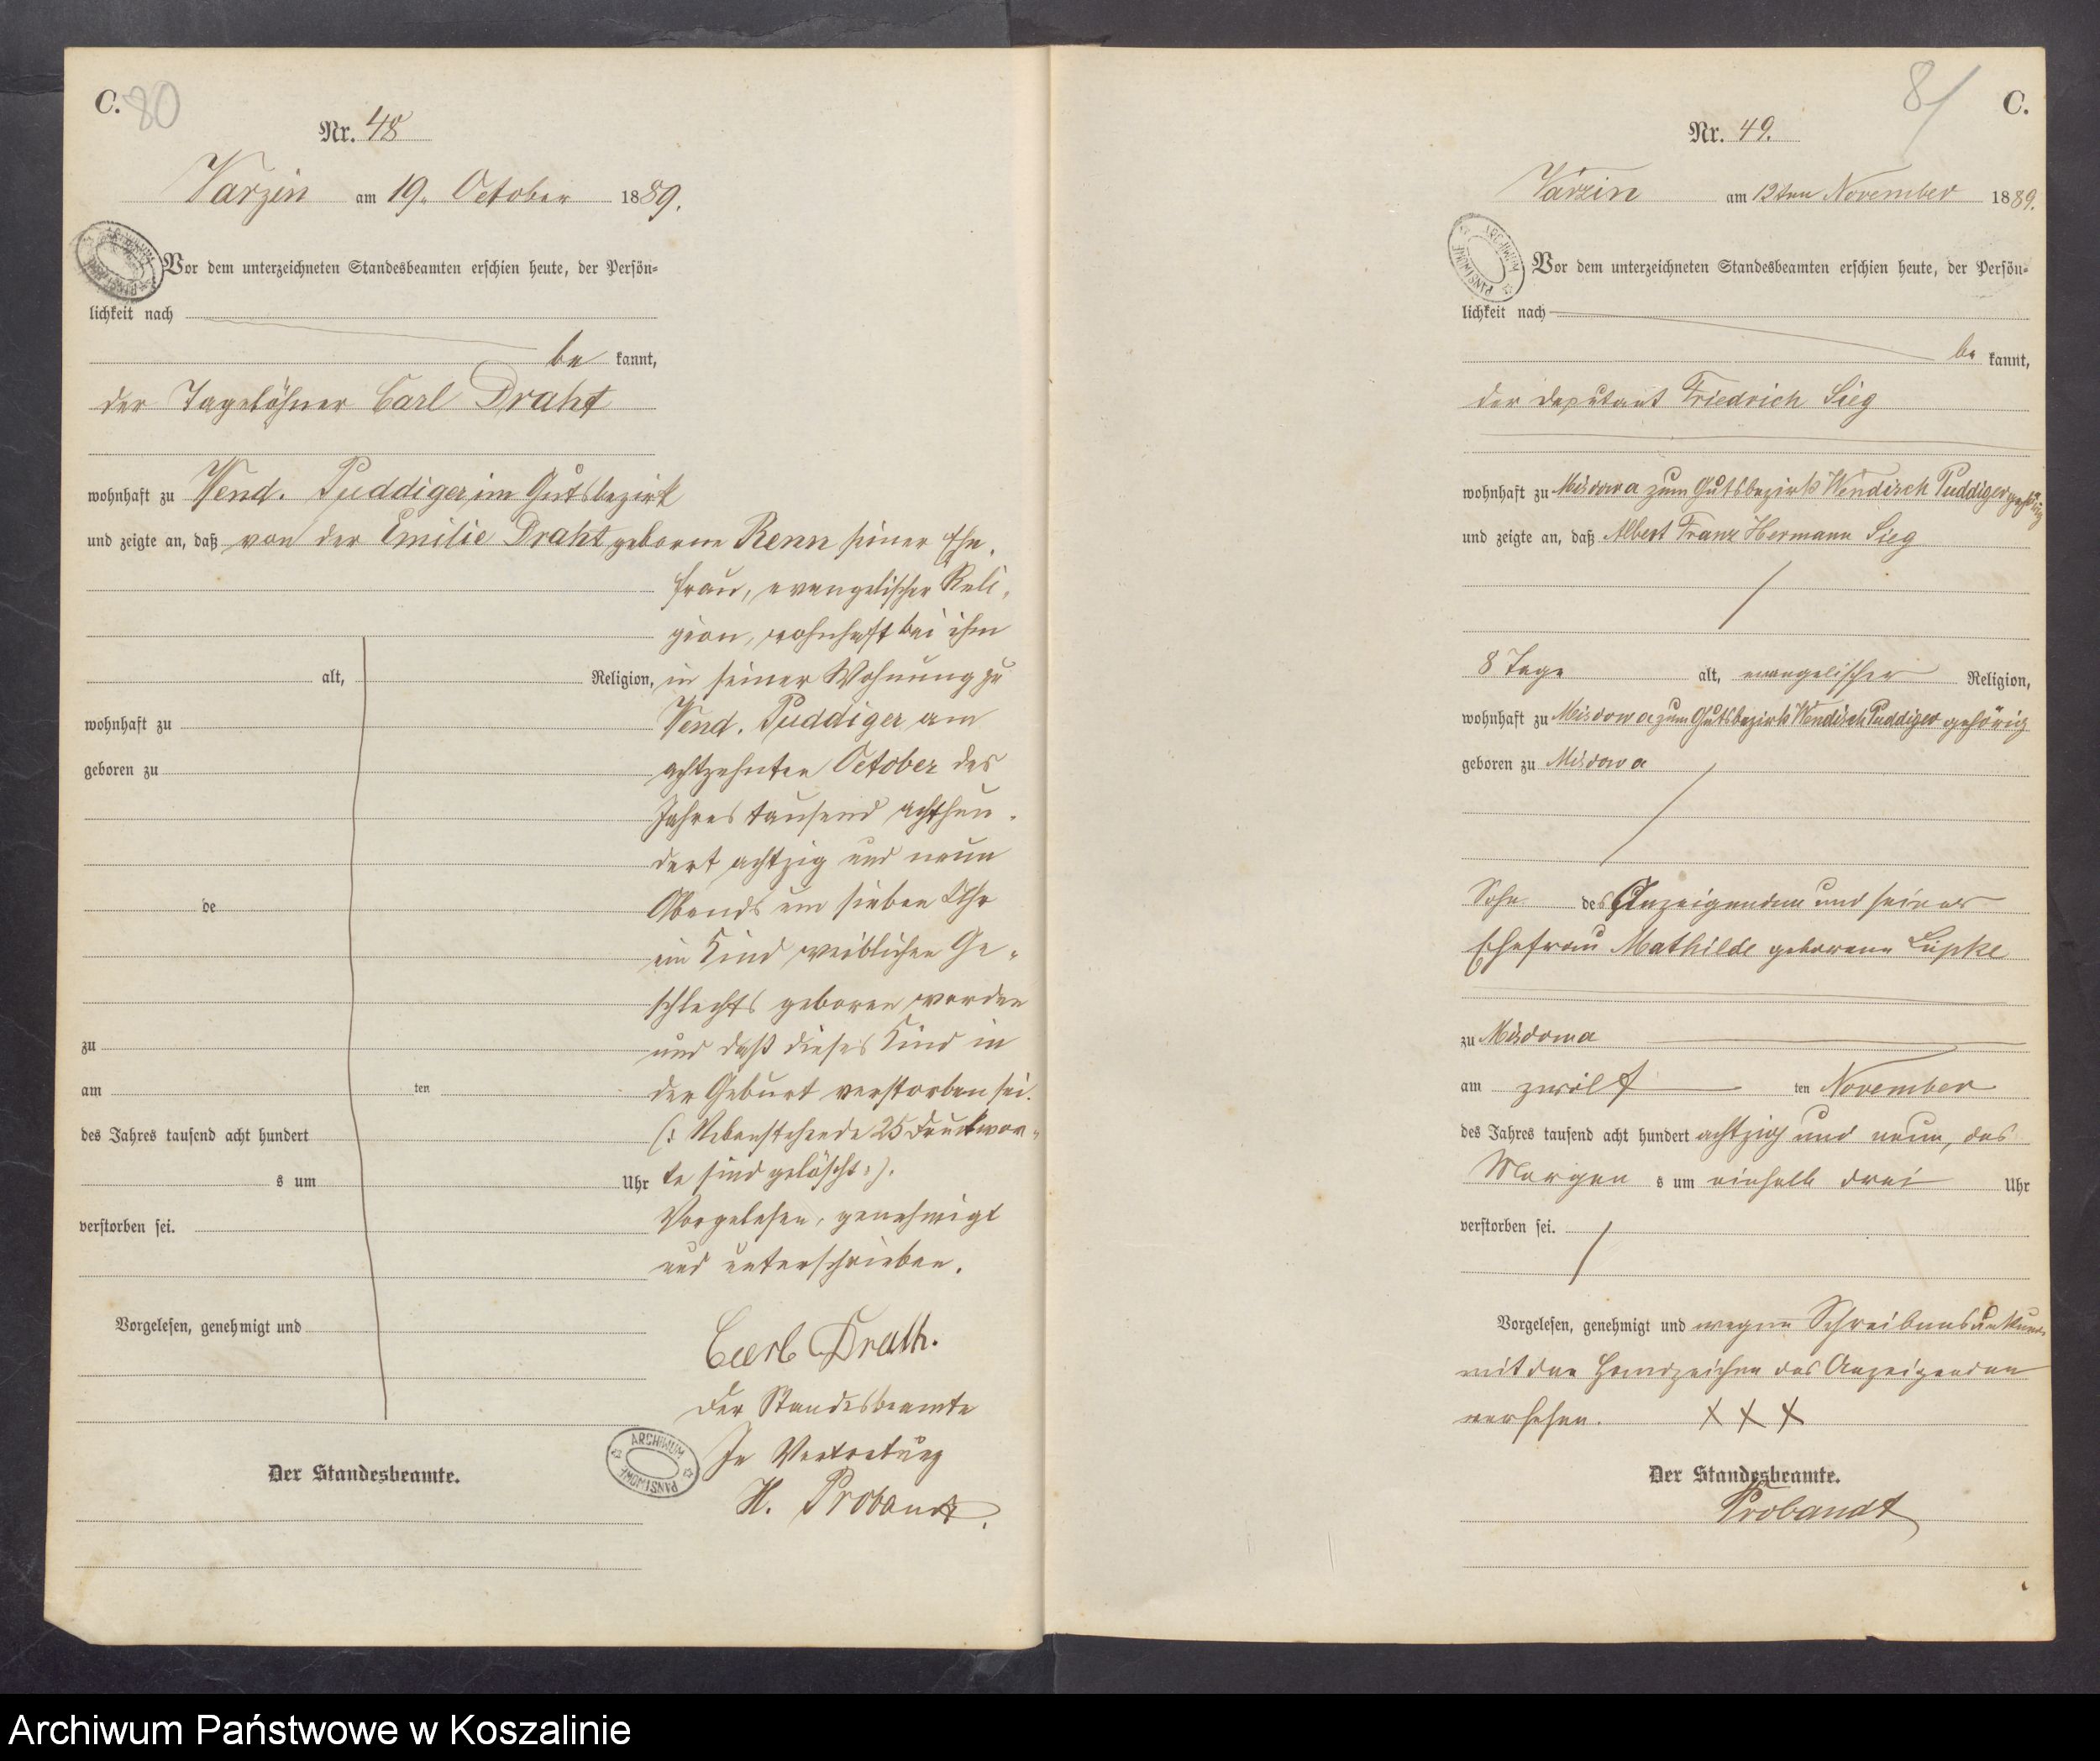 C. 80
Nr. 48
Varzin am 19. October 1889.
Vor dem unterzeichneten Standesbeamten erschien heute, der Persön-
lichkeit nach
be kannt,
der Tagelöhner Carl Draht
wohnhaft zu Wend. Puddiger im Gutsbezirk
und zeigte an, daß von der Emilie Draht geborne Renn seiner Ehe-
frau, evangelischer Reli-
gion, wohnhaft bei ihm
alt, Religion, in seiner Wohnung zu
wohnhaft zu Wend. Puddiger am
geboren zu achtzehnten October des
Jahres tausend achthun-
dert achtzig und neun
de Abends um sieben Uhr
ein Kind weiblichen Ge-
schlechts geboren worden
zu und daß dieses Kind in
am ten der Geburt verstorben sei.
des Jahres tausend acht hundert (: Nebenstehende 25 Druckwor-
s um Uhr te sind gelöscht :).
verstorben sei. Vorgelesen, genehmigt
und unterschrieben.
Vorgelesen, genehmigt und
Carl Drath.
Der Standesbeamte
In Vertretung
Der Standesbeamte.
H. Probandt.
ARCHIWUM PAŃSTWOWE
81 C.
Nr. 49.
Varzin am 12ten November 1889.
Vor dem unterzeichneten Standesbeamten erschien heute, der Persön-
lichkeit nach
be kannt,
der Deputant Friedrich Sieg
wohnhaft zu Misdowa zum Gutsbezirk Wendisch Puddiger gehörig
und zeigte an, daß Albert Franz Hermann Sieg
8 Tage alt, evangelischer Religion,
wohnhaft zu Misdowa zum Gutsbezirk Wendisch Puddiger gehörig
geboren zu Misdowa
Sohn des Anzeigenden und seiner
Ehefrau Mathilde geborenen Lüpke
zu Misdowa
am zwölf ten November
des Jahres tausend acht hundert achtzig und neun, des
Morgen s um einhalb drei Uhr
verstorben sei.
Vorgelesen, genehmigt und wegen Schreibensunkunde
mit den Handzeichen des Anzeigenden
versehen. X X X
Der Standesbeamte.
Probandt
ARCHIWUM PAŃSTWOWE
Archiwum Państwowe w Koszalinie